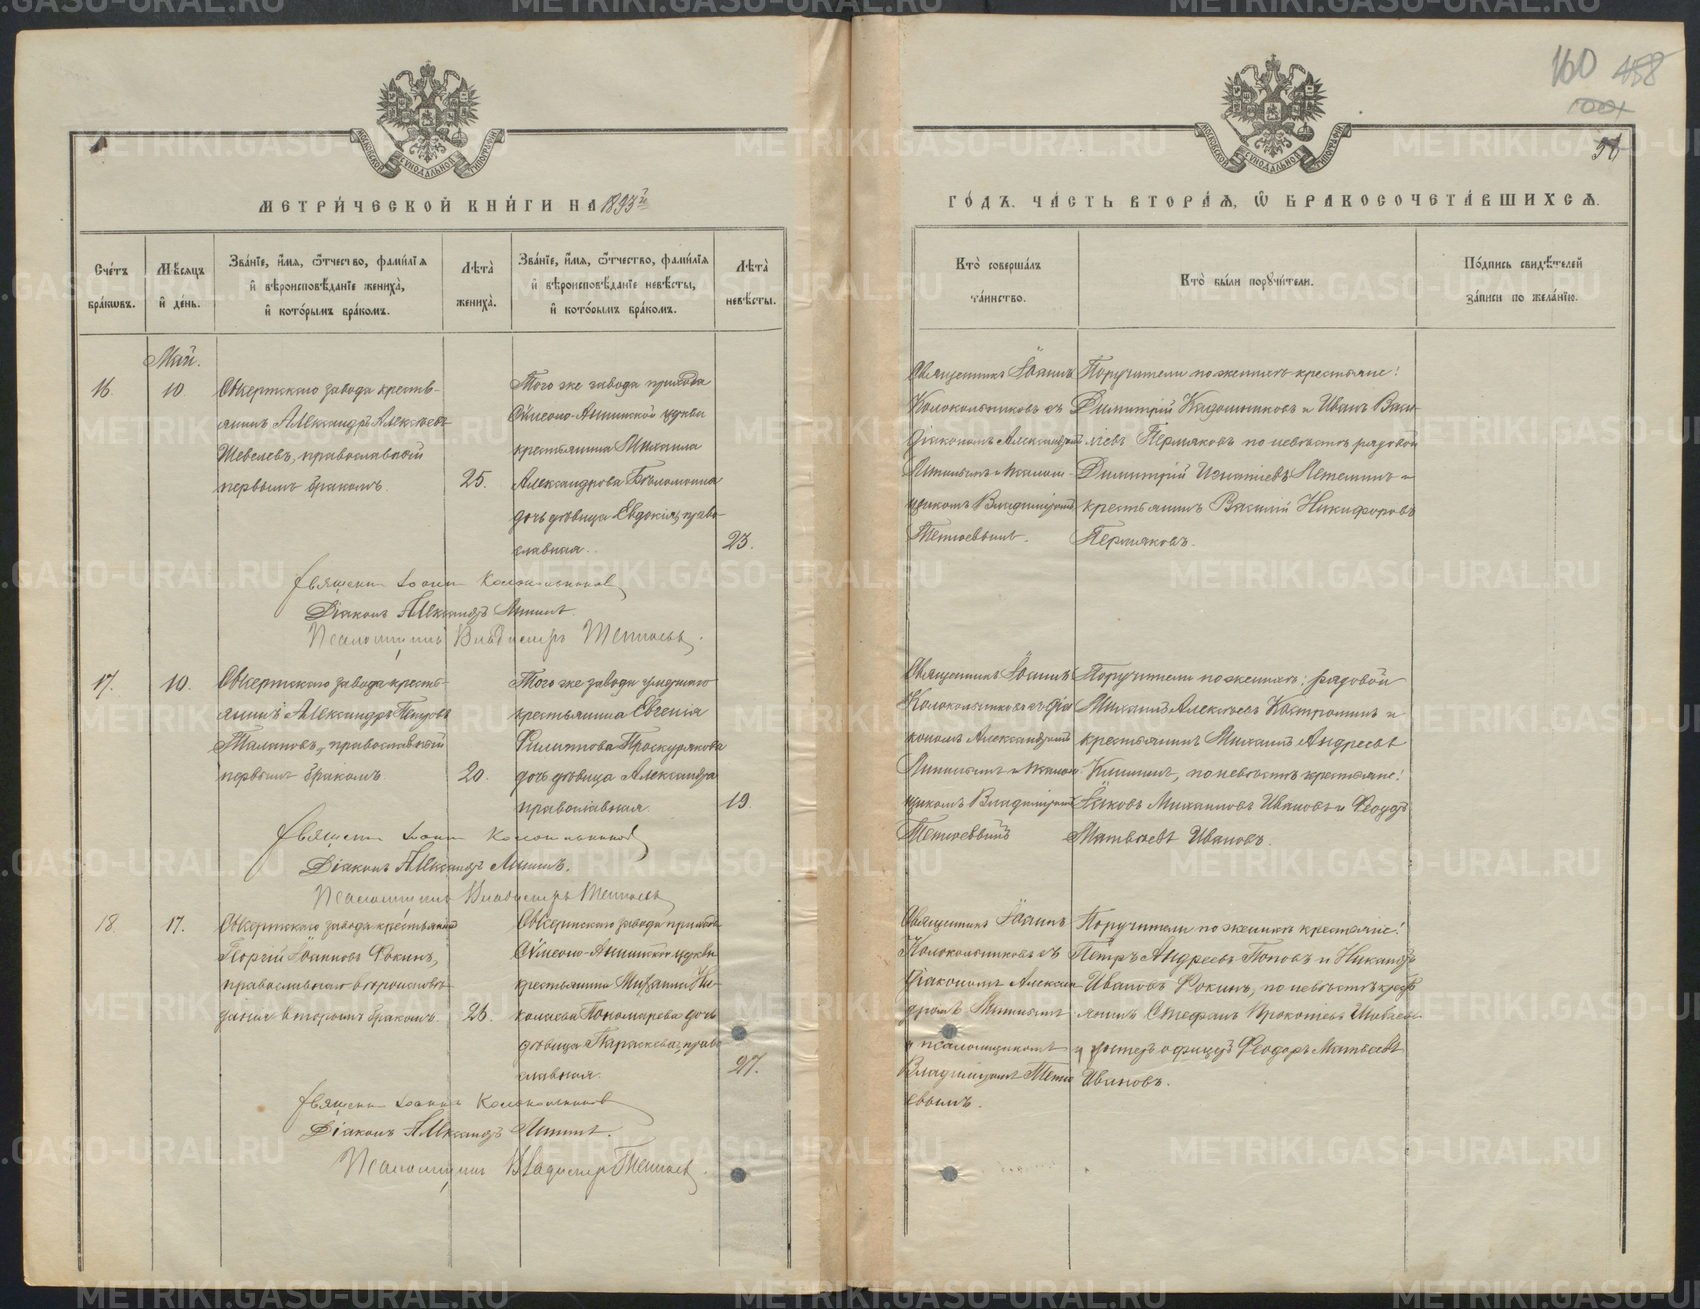 160 158
1001
58
МЕТРИ́ЧЕСКОЙ КНИ́ГИ НА 1893й
ГО́ДЪ. ЧА́СТЬ ВТОРА́Я, Ѡ БРАКОСОЧЕТА́ВШИХСЯ.
Сче́тъ бра́кѡвъ.
Мѣ́сяцъ и҆ де́нь.
Зва́нїе, и҆́мя, ѻ҆́тчество, фами́лїя
и҆ вѣроисповѣ́данїе жениха̀,
и҆ кото́рымъ бра́комъ.
Лѣ́та̀ жениха̀.
Зва́нїе, и҆́мя, ѻ҆́тчество, фами́лїя
и҆ вѣроисповѣ́данїе невѣ́сты,
и҆ кото́рымъ бра́комъ.
Лѣ́та̀ невѣ́сты.
Кто̀ соверша́лъ та́инство.
Кто̀ бы́ли порꙋчи́тели.
По́дпись свидѣ́телей за́писи по жела́нїю.
Май.
16.
10.
Сысертскаго завода кресть-
янинъ Александръ Алексѣевъ
Шевелевъ, православный
первымъ бракомъ.
25.
Того же завода прихода
Сѵмеоно-Аннинской церкви
крестьянина Михаила
Александрова
дочь дѣвица Евдокія, право-
славная.
23.
Священникъ Іоаннъ
Колокольниковъ съ
діакономъ Александромъ
Мининымъ и псалом-
щикомъ Владиміромъ
Поручители по женихѣ крестьяне:
Димитрій Кадошниковъ и Иванъ Васи-
ліевъ Пермяковъ по невѣстѣ рядовой
Димитрій Игнатіевъ Летеминъ и
крестьянинъ Василій Никифоровъ
Пермяковъ.
Священникъ Іоаннъ Колокольниковъ
Діаконъ Александръ Мининъ.
Псаломщикъ Владимиръ
17.
10.
Сысертскаго завода кресть-
янинъ Александръ Петровъ
Талановъ, православный
первымъ бракомъ.
20.
Того же завода умершаго
крестьянина Евгенія
Филиппова Проскурякова
дочь дѣвица Александра
православная.
19.
Священникъ Іоаннъ
Колокольниковъ съ діа-
кономъ Александромъ
Мининымъ и псалом-
щикомъ Владиміромъ
Поручители по женихѣ: рядовой
Михаилъ Алексѣевъ Костроминъ и
крестьянинъ Михаилъ Андреевъ
по невѣстѣ крестьяне:
Іаковъ Михаиловъ Ивановъ и Ѳеодоръ
Матвѣевъ Ивановъ.
Священникъ Іоаннъ Колокольниковъ
Діаконъ Александръ Мининъ.
Псаломщикъ Владимиръ
18.
17.
Сысертскаго завода крестьянинъ
Георгій Іоанновъ Фокинъ,
православнаго вѣроисповѣ-
данія вторымъ бракомъ.
26.
Сысертскаго завода прихода
Сѵмеоно-Аннинской церкви
крестьянина Михаила Ни-
колаева Пономарева дочь
дѣвица Параскева, право-
славная.
27.
Священникъ Іоаннъ
Колокольниковъ съ
діакономъ Алексан-
дромъ Мининымъ
и псаломщикомъ
Владиміромъ
Поручители по женихѣ крестьяне:
Петръ Андреевъ Поповъ и Никандръ
Ивановъ Фокинъ, по невѣстѣ кресть-
янинъ Стефанъ Прокопіевъ
и унтеръ офицеръ Ѳеодоръ Матвѣевъ
Ивановъ.
Священникъ Іоаннъ Колокольниковъ
Діаконъ Александръ Мининъ.
Псаломщикъ Владимиръ